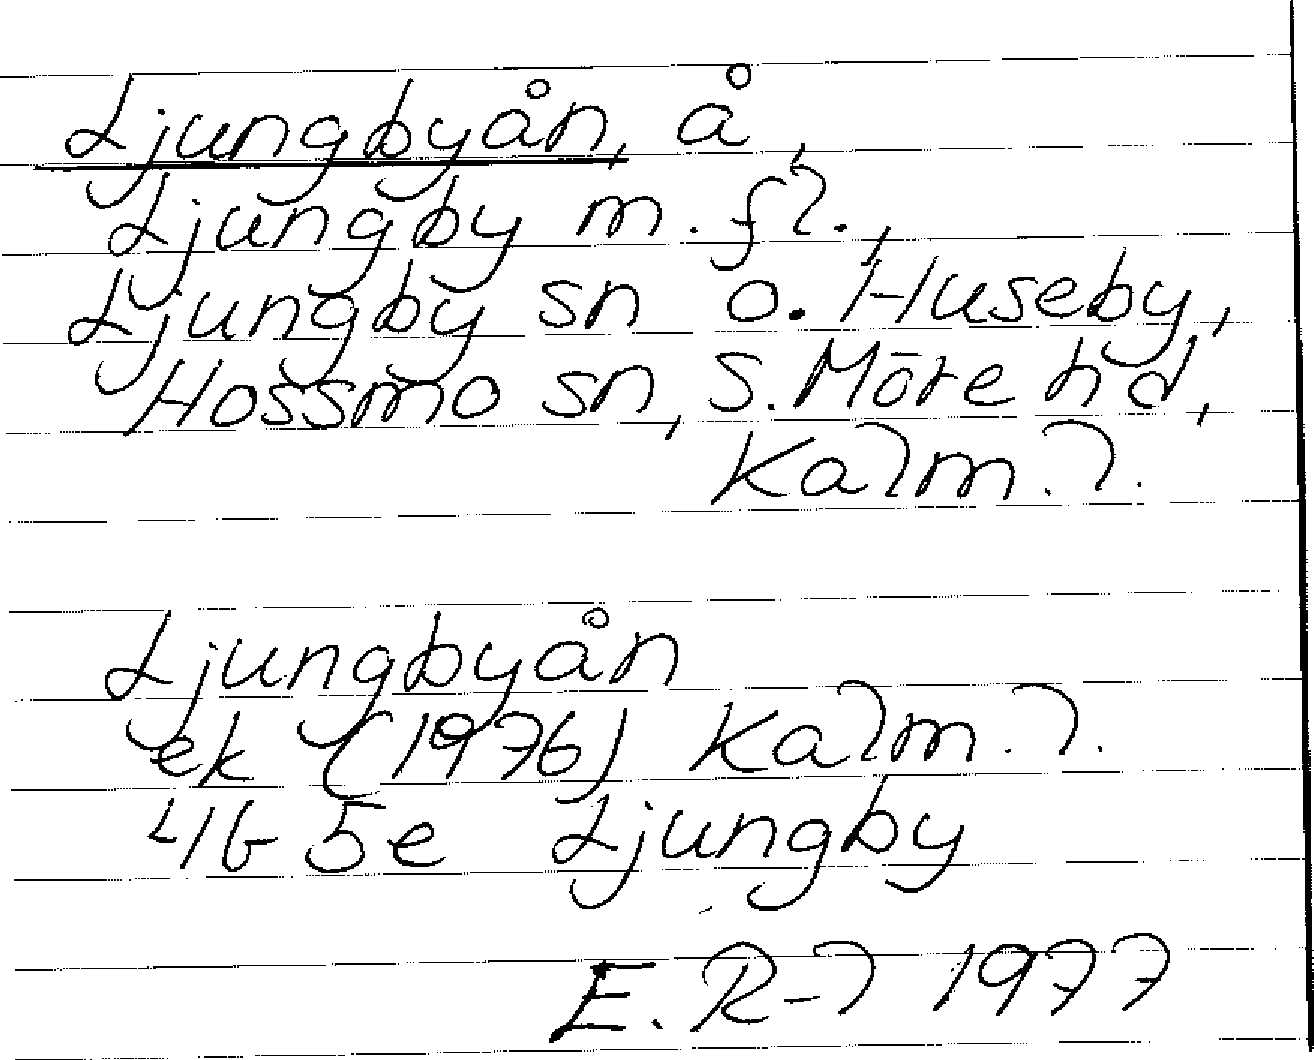 Ljungbyån, å,
Ljungby m. fl.,
Ljungby sn o. Huseby,
Hossmo sn, S. Möre hd,
Kalm. l.
Ljungbyån
ek (1976) Kalm. l.
4G 5e Ljungby
E. R-l 1977